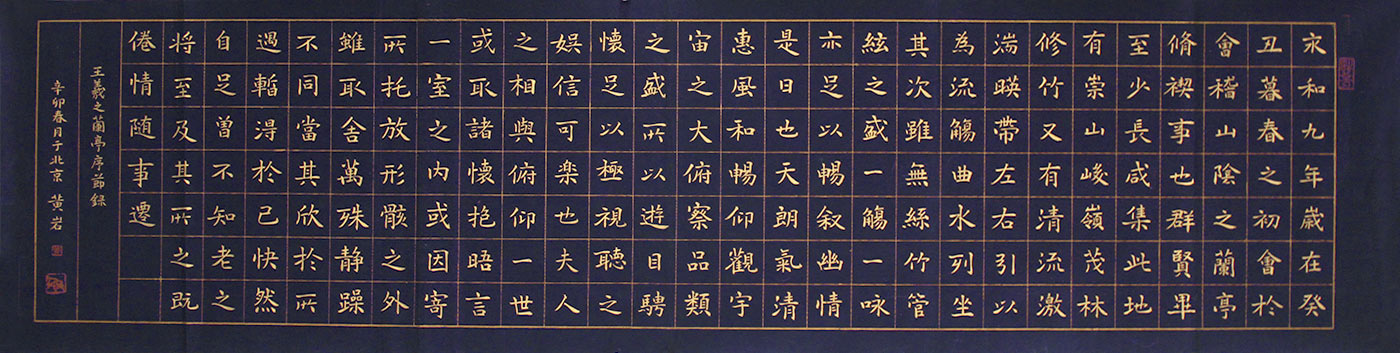 永和九年歲在癸
丑暮春之初會於
會稽山陰之蘭亭
脩禊事也群賢畢
至少長咸集此地
有崇山峻嶺茂林
修竹又有清流激
湍暎帶左右引以
為流觴曲水列坐
其次雖無絲竹管
絃之盛一觴一咏
亦足以暢叙幽情
是日也天朗氣清
惠風和暢仰觀宇
宙之大俯察品類
之盛所以遊目騁
懷足以極視聽之
娱信可楽也夫人
之相與俯仰一世
或取諸懷抱晤言
一室之内或因寄
所托放形骸之外
雖取舍萬殊静躁
不同當其欣於所
遇暫得於己快然
自足曾不知老之
将至及其所之既
倦情随事遷
王羲之蘭亭序節録
辛卯春月于北京 黄岩